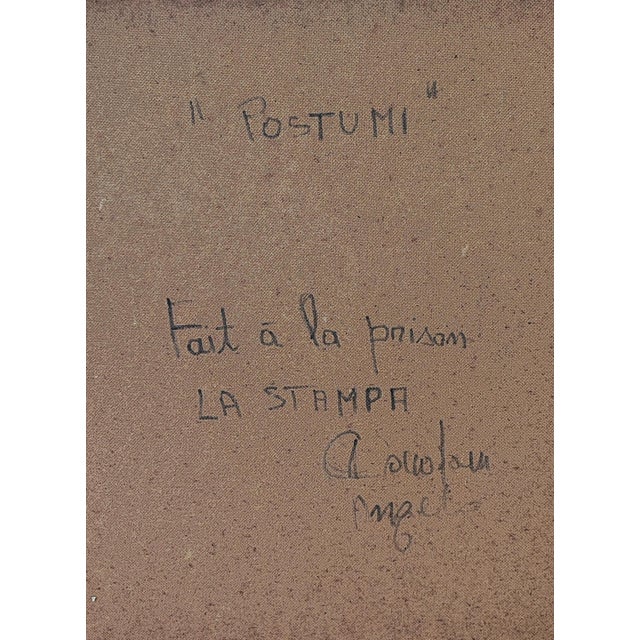 " POSTUMI "
Fait à la prison
LA STAMPA